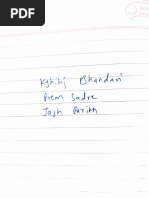 Kshitij Bhandari
Prem Sadre
Jash Parikh